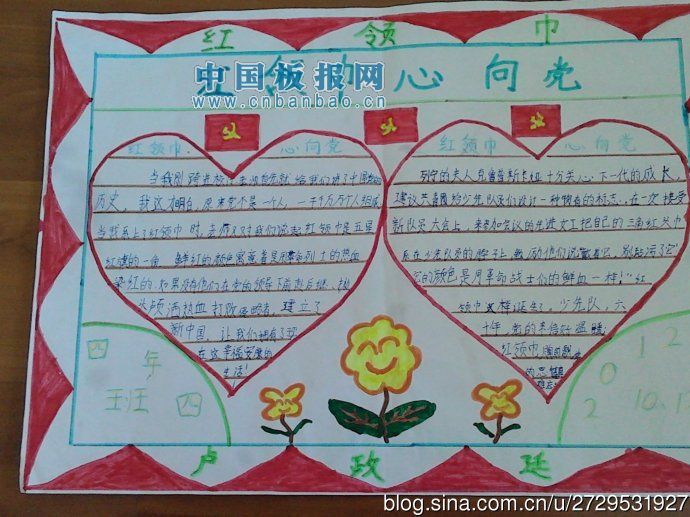 红 领 巾
中国板报网
www.cnbanbao.cn
心 向 党
红领巾 心向党
当我刚
历史，我这才明白，原来党不是一个人，一千万万个人组成
当我系上了红领巾时，老师又对我们说起红领巾是五星
红旗的一角，鲜红的颜色寓意着是用革命烈士的热血
染红的。如果没有他们在党的领导下前赴后继、抛
头颅洒热血打败侵略者，建立了
新中国，让我们拥有了现
在这幸福安康的
生活！
红领巾 心向党
列宁的夫人克鲁普斯卡娅十分关心下一代的成长，
建议共青团给少先队员们设计一种独有的标志。在一次接受
新队员大会上，来参加会议的先进女工把自己的三角红头巾
系在少先队员的脖子上，激励他们说戴着它，别玷污了它
它的颜色是同革命战士们的鲜血一样！"红
领巾这样诞生。少先队，六
十年，党的关怀好温暖
红领巾胸前飘
四 年
四 班
2 0 1 2
10.1
卢 政 廷
blog.sina.com.cn/u/2729531927